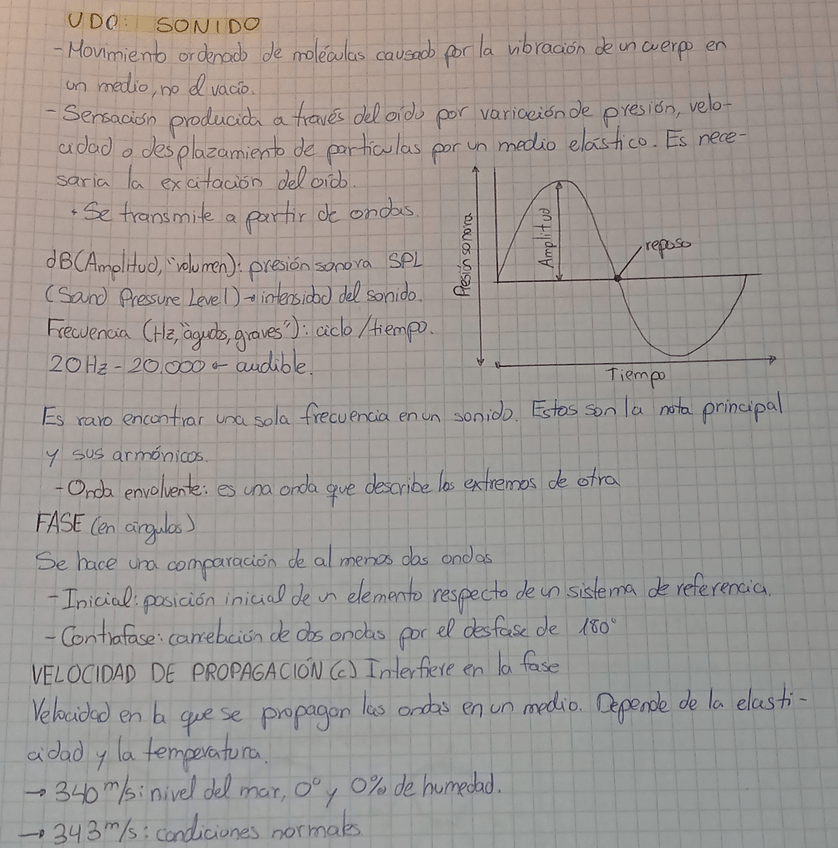 UD0: SONIDO
- Movimiento ordenado de moléculas causado por la vibración de un cuerpo en
un medio, no el vacío.
- Sensación producida a través del oído por variación de presión, velo-
cidad o desplazamiento de partículas por un medio elástico. Es nece-
saria la excitación del oído.
· Se transmite a partir de ondas.
dB (Amplitud, "volumen): presión sonora SPL
(Sand Pressure Level) → intensidad del sonido.
Frecuencia (Hz, "agudos, graves"): ciclo/tiempo.
20Hz - 20.000 → audible.
Presión sonora
Amplitud
reposo
Tiempo
Es raro encontrar una sola frecuencia en un sonido. Estos son la nota principal
y sus armónicos.
- Onda envolvente: es una onda que describe los extremos de otra
FASE (en ángulos)
Se hace una comparación de al menos dos ondas
- Inicial: posición inicial de un elemento respecto de un sistema de referencia.
- Contrafase: correlación de dos ondas por el desfase de 180°
VELOCIDAD DE PROPAGACIÓN (c) Interfiere en la fase
Velocidad en la que se propagan las ondas en un medio. Depende de la elasti-
cidad y la temperatura.
→ 340 m/s: nivel del mar, 0° y 0% de humedad.
→ 343 m/s: condiciones normales